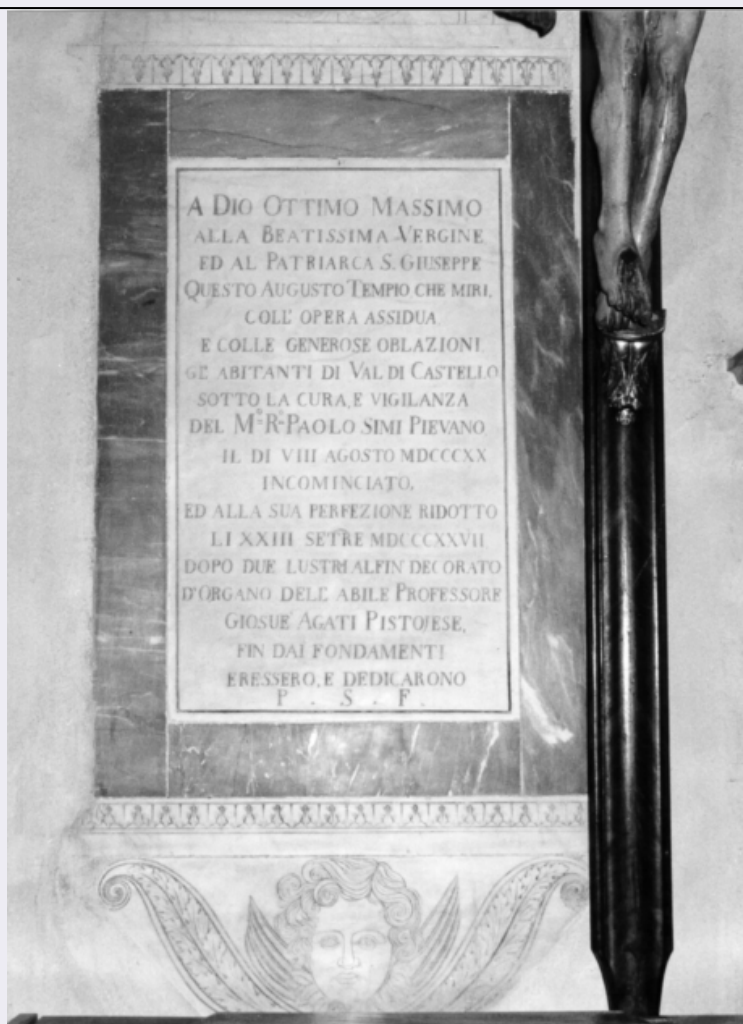 A DIO OTTIMO MASSIMO
ALLA BEATISSIMA VERGINE
ED AL PATRIARCA S. GIUSEPPE
QUESTO AUGUSTO TEMPIO, CHE MIRI,
COLL' OPERA ASSIDUA
E COLLE GENEROSE OBLAZIONI
GL' ABITANTI DI VAL DI CASTELLO
SOTTO LA CURA, E VIGILANZA
DEL M.º R.º PAOLO SIMI PIEVANO
IL DI VIII AGOSTO MDCCCXX
INCOMINCIATO,
ED ALLA SUA PERFEZIONE RIDOTTO
LI XXIII SETRE MDCCCXXVII
DOPO DUE LUSTRI ALFIN DECORATO
D'ORGANO DELL' ABILE PROFESSORE
GIOSUE' AGATI PISTOJESE,
FIN DAI FONDAMENTI
ERESSERO, E DEDICARONO
P . S . F .